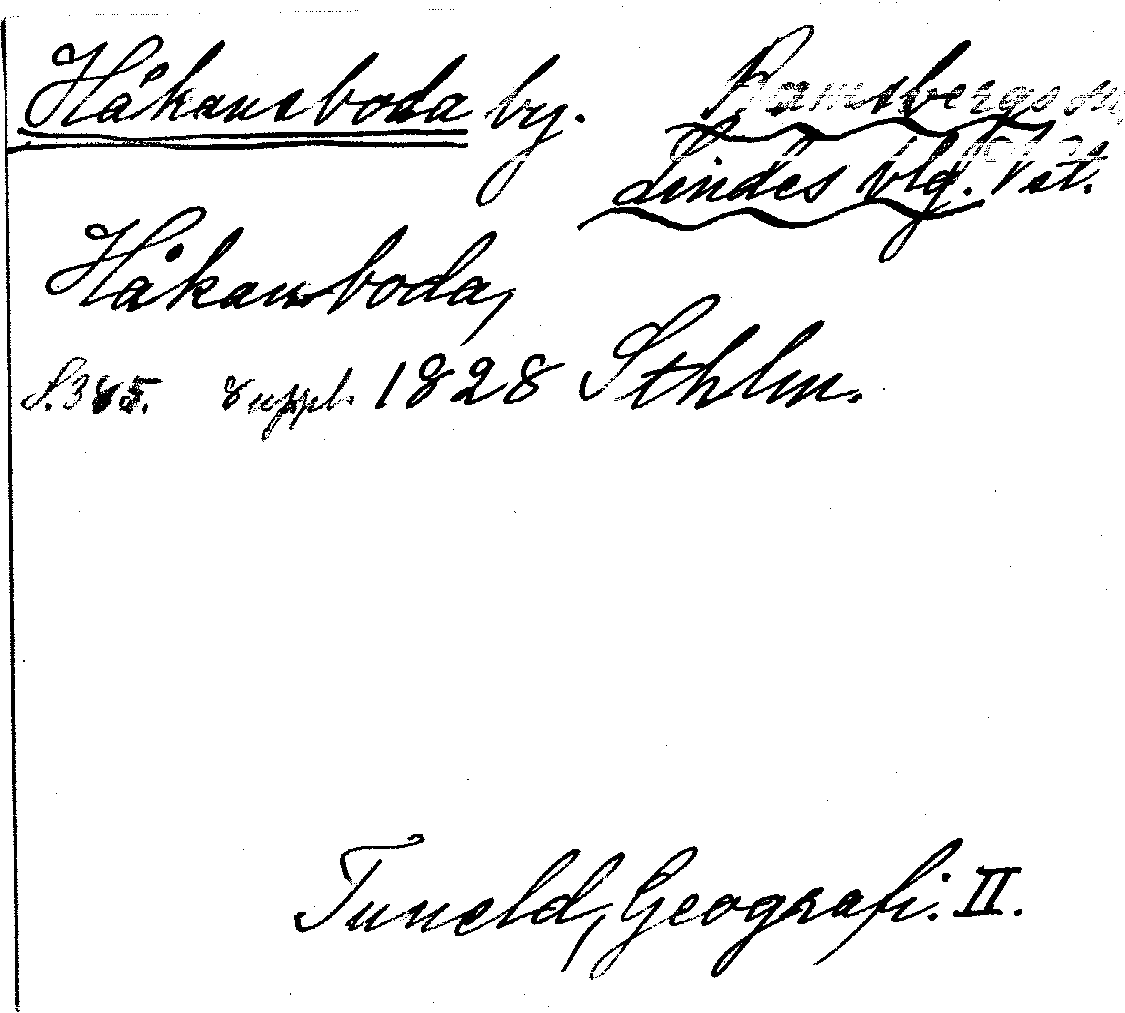 Håkansboda by. Ramsbergs sn,
Lindes blg. Vstl.
Håkansboda,
S. 385. 8 uppl. 1828 Sthlm.
Tuneld, Geografi. II.